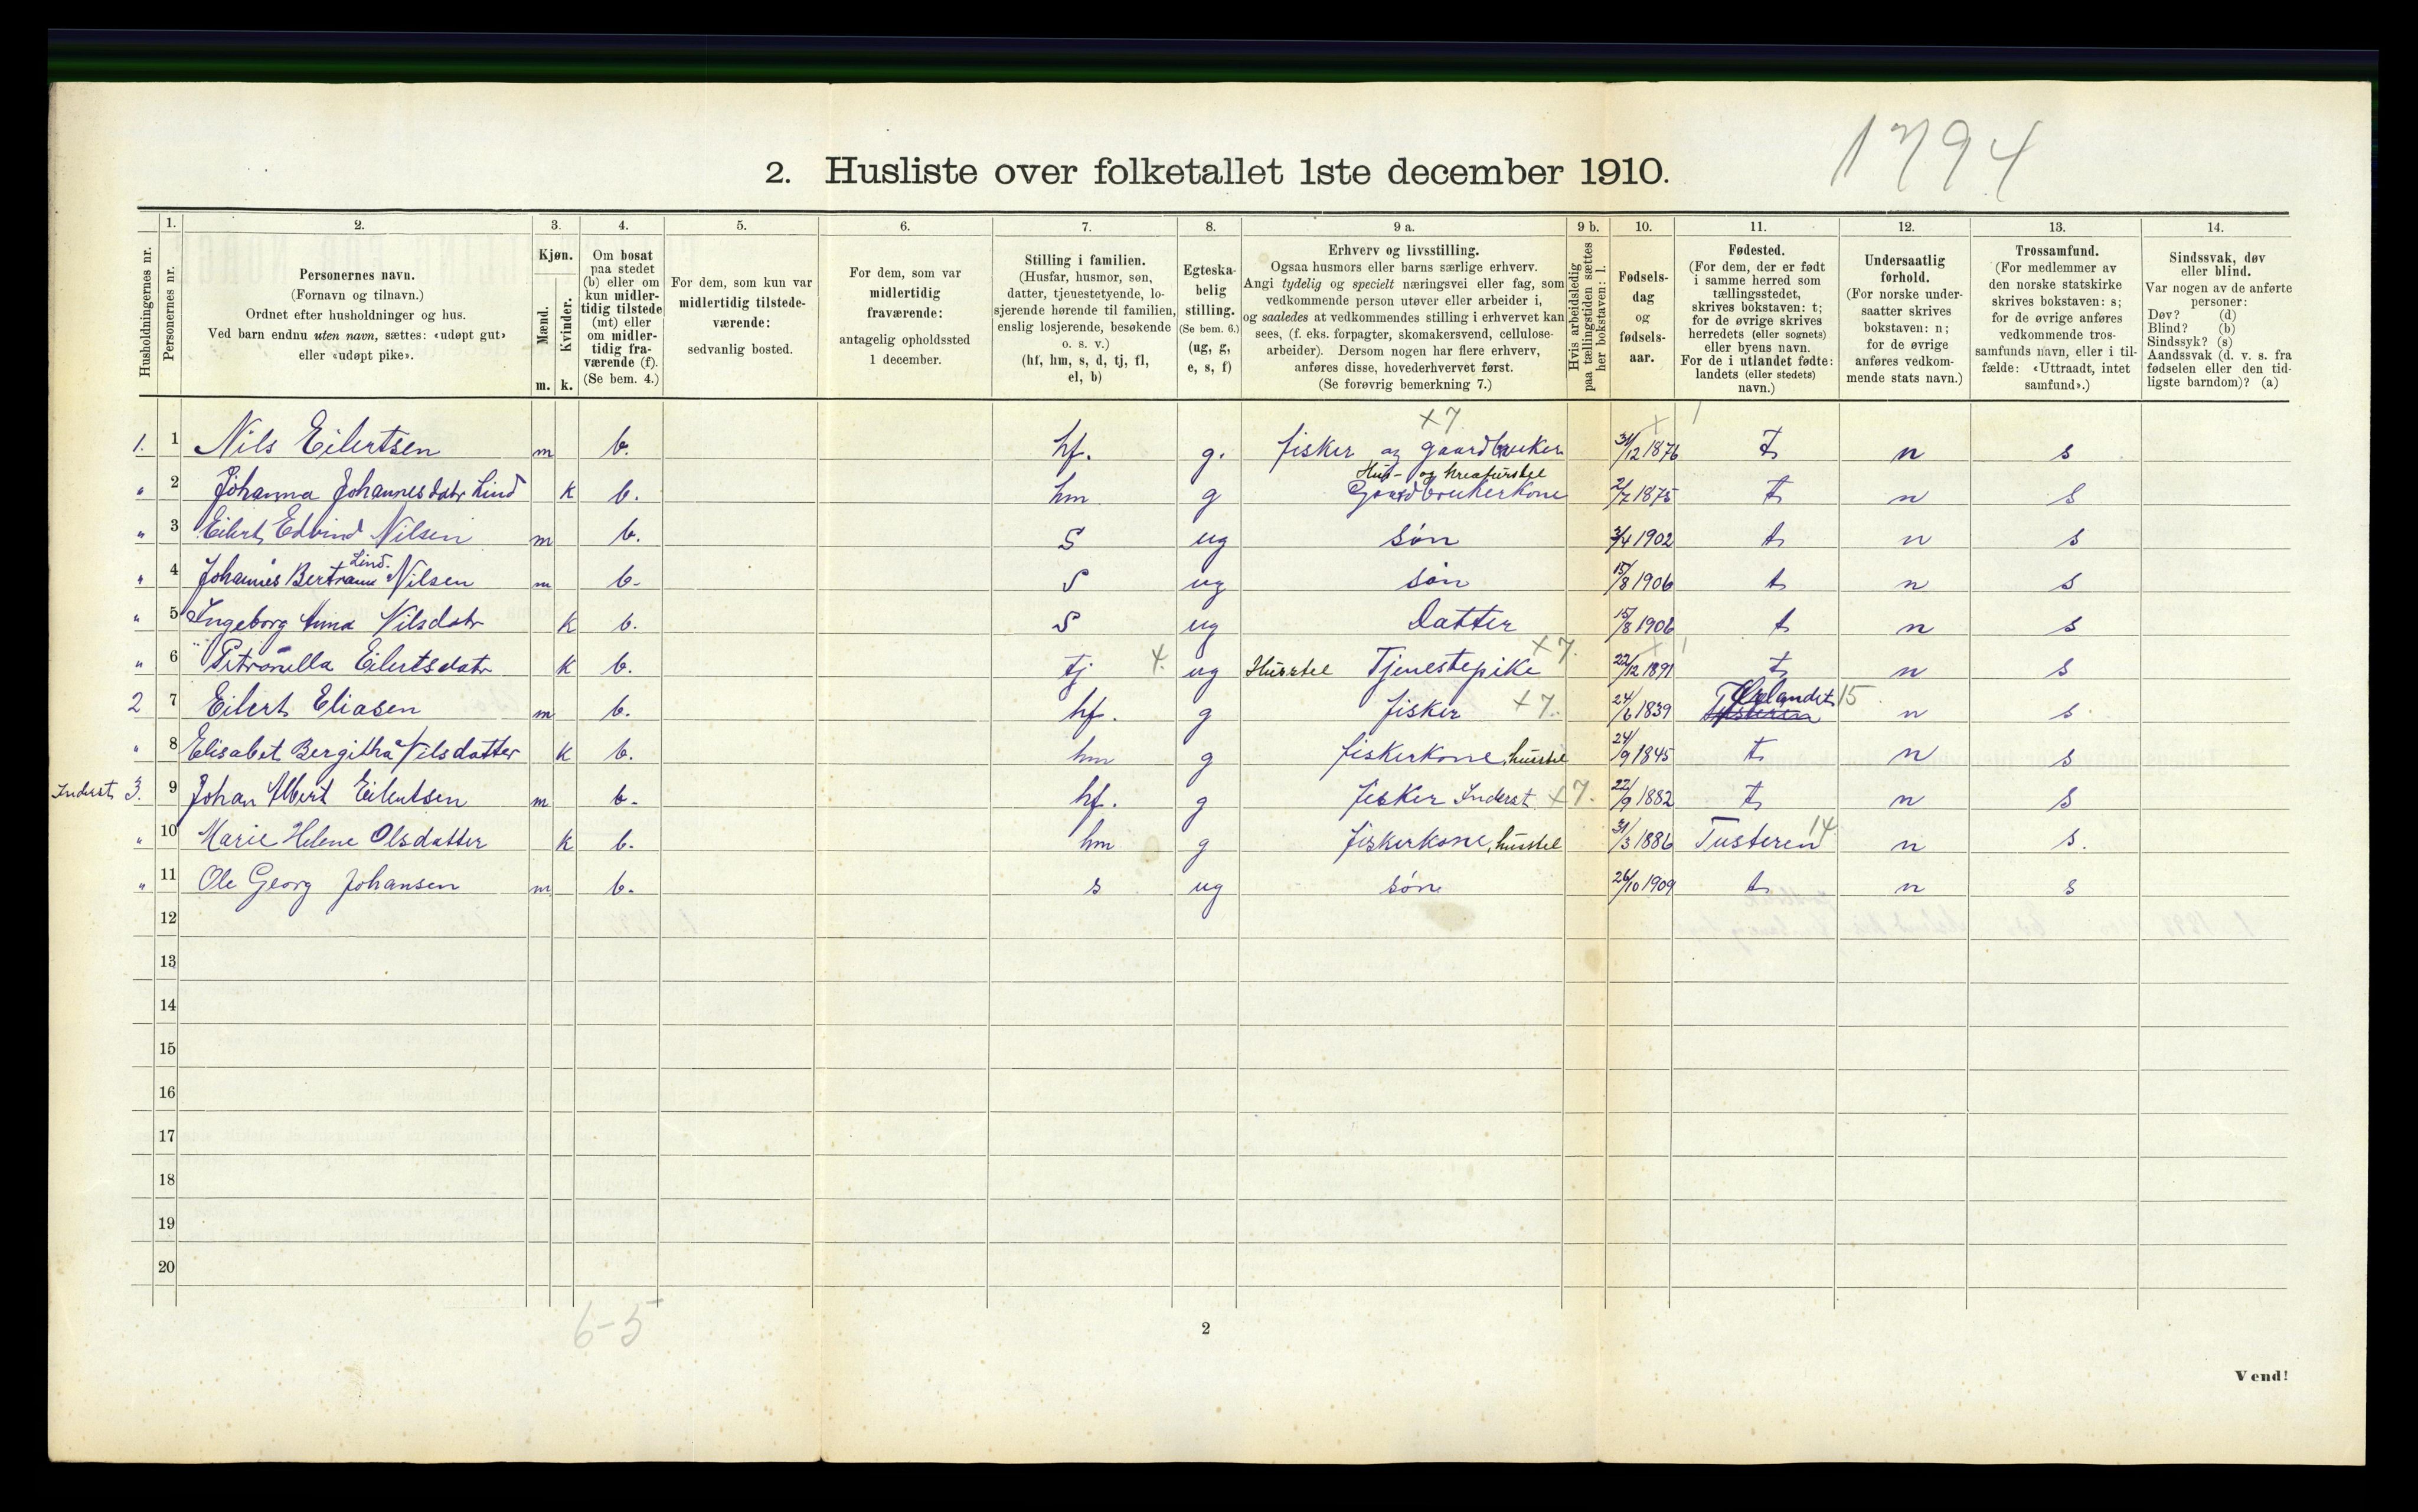 1794
2. Husliste over folketallet 1ste december 1910.
Husholdningernes nr.
1.
Personernes nr.
2.
Personernes navn.
(Fornavn og tilnavn.)
Ordnet efter husholdninger og hus.
Ved barn endnu uten navn, sættes: «udøpt gut»
eller «udøpt pike».
3.
Kjøn.
Mænd.
Kvinder.
m. k.
4.
Om bosat
paa stedet
(b) eller om
kun midler-
tidig tilstede
(mt) eller
om midler-
tidig fra-
værende (f).
(Se bem. 4.)
5.
For dem, som kun var
midlertidig tilstede-
værende:
sedvanlig bosted.
6.
For dem, som var
midlertidig
fraværende:
antagelig opholdssted
1 december.
7.
Stilling i familien.
(Husfar, husmor, søn,
datter, tjenestetyende, lo-
sjerende hørende til familien,
enslig losjerende, besøkende
o. s. v.)
(hf, hm, s, d, tj, fl,
el, b)
8.
Egteska-
belig
stilling.
(Se bem. 6.)
(ug, g,
e, s, f)
9 a.
Erhverv og livsstilling.
Ogsaa husmors eller barns særlige erhverv.
Angi tydelig og specielt næringsvei eller fag, som
vedkommende person utøver eller arbeider i,
og saaledes at vedkommendes stilling i erhvervet kan
sees, (f. eks. forpagter, skomakersvend, cellulose-
arbeider). Dersom nogen har flere erhverv,
anføres disse, hovederhvervet først.
(Se forøvrig bemerkning 7.)
9 b.
Hvis arbeidsledig
paa tællingstiden sættes
her bokstaven: l.
10.
Fødsels-
dag
og
fødsels-
aar.
11.
Fødested.
(For dem, der er født
i samme herred som
tællingsstedet,
skrives bokstaven: t;
for de øvrige skrives
herredets (eller sognets)
eller byens navn.
For de i utlandet fødte:
landets (eller stedets)
navn.)
12.
Undersaatlig
forhold.
(For norske under-
saatter skrives
bokstaven: n;
for de øvrige
anføres vedkom-
mende stats navn.)
13.
Trossamfund.
(For medlemmer av
den norske statskirke
skrives bokstaven: s;
for de øvrige anføres
vedkommende tros-
samfunds navn, eller i til-
fælde: «Uttraadt, intet
samfund».)
14.
Sindssvak, døv
eller blind.
Var nogen av de anførte
personer:
Døv? (d)
Blind? (b)
Sindssyk? (s)
Aandssvak (d. v. s. fra
fødselen eller den tid-
ligste barndom)? (a)
+7
1. 1 Nils Eilertsen m b. hf. g. fisker og gaardbruker 31/12 1876 t n s
Hus- og kreaturstel
" 2 Johanna Johannesdatr Lind k b. hm g Gaardbrukerkone 2/7 1875 t n s
" 3 Eilert Edvind Nilsen m b. S ug søn 3/4 1902 t n s
Lind.
" 4 Johannes Bertrame Nilsen m b. S ug søn 15/8 1906 t n s
" 5 Ingeborg Anna Nilsdatr k b. S ug Datter 15/8 1906 t n s
" 6 Petronella Eilertsdatr k b. tj 4. ug Husstel Tjenestepike +7. 22/12 1891 t n s
2 7 Eilert Eliasen m b. hf. g fisker +7. 24/6 1839 Ørlandet 15 n s
" 8 Elisabet Bergitha Nilsdatter k b. hm g fiskerkone, husstel 24/9 1845 t n s
Inderst 3. 9 Johan Albert Eilertsen m b. hf. g fisker Inderst +7. 22/9 1882 t n s
" 10 Marie Helene Olsdatter k b. hm g fiskerkone, husstel 31/3 1886 Tusteren 14. n s.
" 11 Ole Georg Johansen m b. s ug søn 26/10 1909 t n s
12
13
14
15
16
17
18
19
20
6-5
2
Vend!